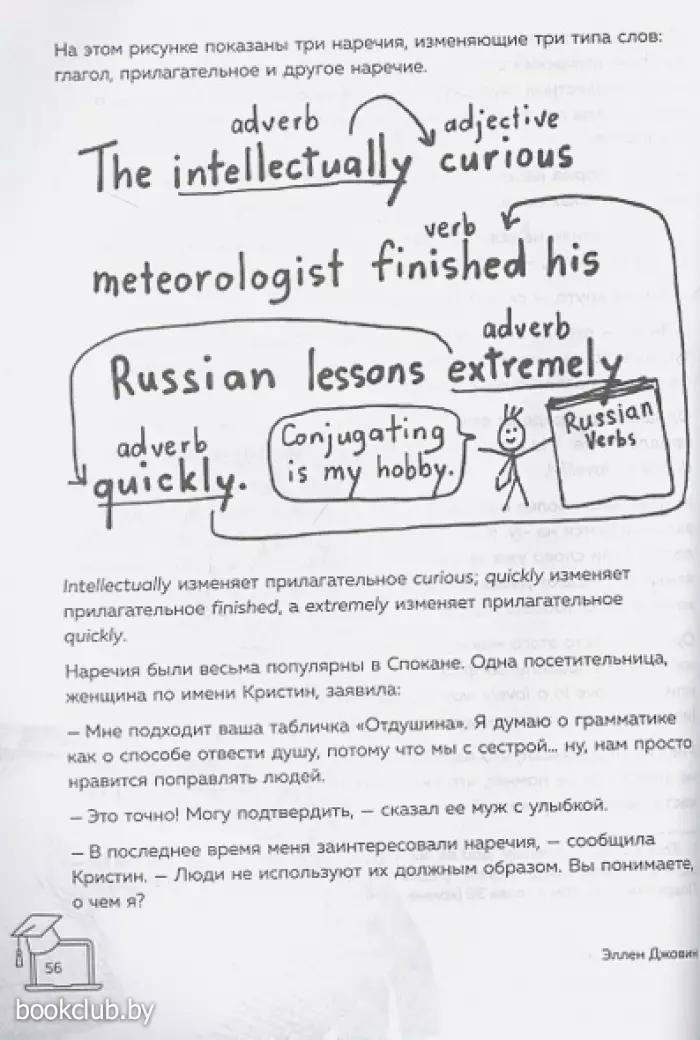 На этом рисунке показаны три наречия, изменяющие три типа слов:
глагол, прилагательное и другое наречие.
adverb adjective
The intellectually curious
verb
meteorologist finished his
adverb
Russian lessons extremely
adverb
quickly.
Conjugating
is my hobby.
Russian
Verbs
Intellectually изменяет прилагательное curious; quickly изменяет
прилагательное finished, а extremely изменяет прилагательное
quickly.
Наречия были весьма популярны в Спокане. Одна посетительница,
женщина по имени Кристин, заявила:
– Мне подходит ваша табличка «Отдушина». Я думаю о грамматике
как о способе отвести душу, потому что мы с сестрой... ну, нам просто
нравится поправлять людей.
– Это точно! Могу подтвердить, – сказал ее муж с улыбкой.
– В последнее время меня заинтересовали наречия, – сообщила
Кристин. – Люди не используют их должным образом. Вы понимаете,
о чем я?
56
Эллен Джовин
bookclub.by